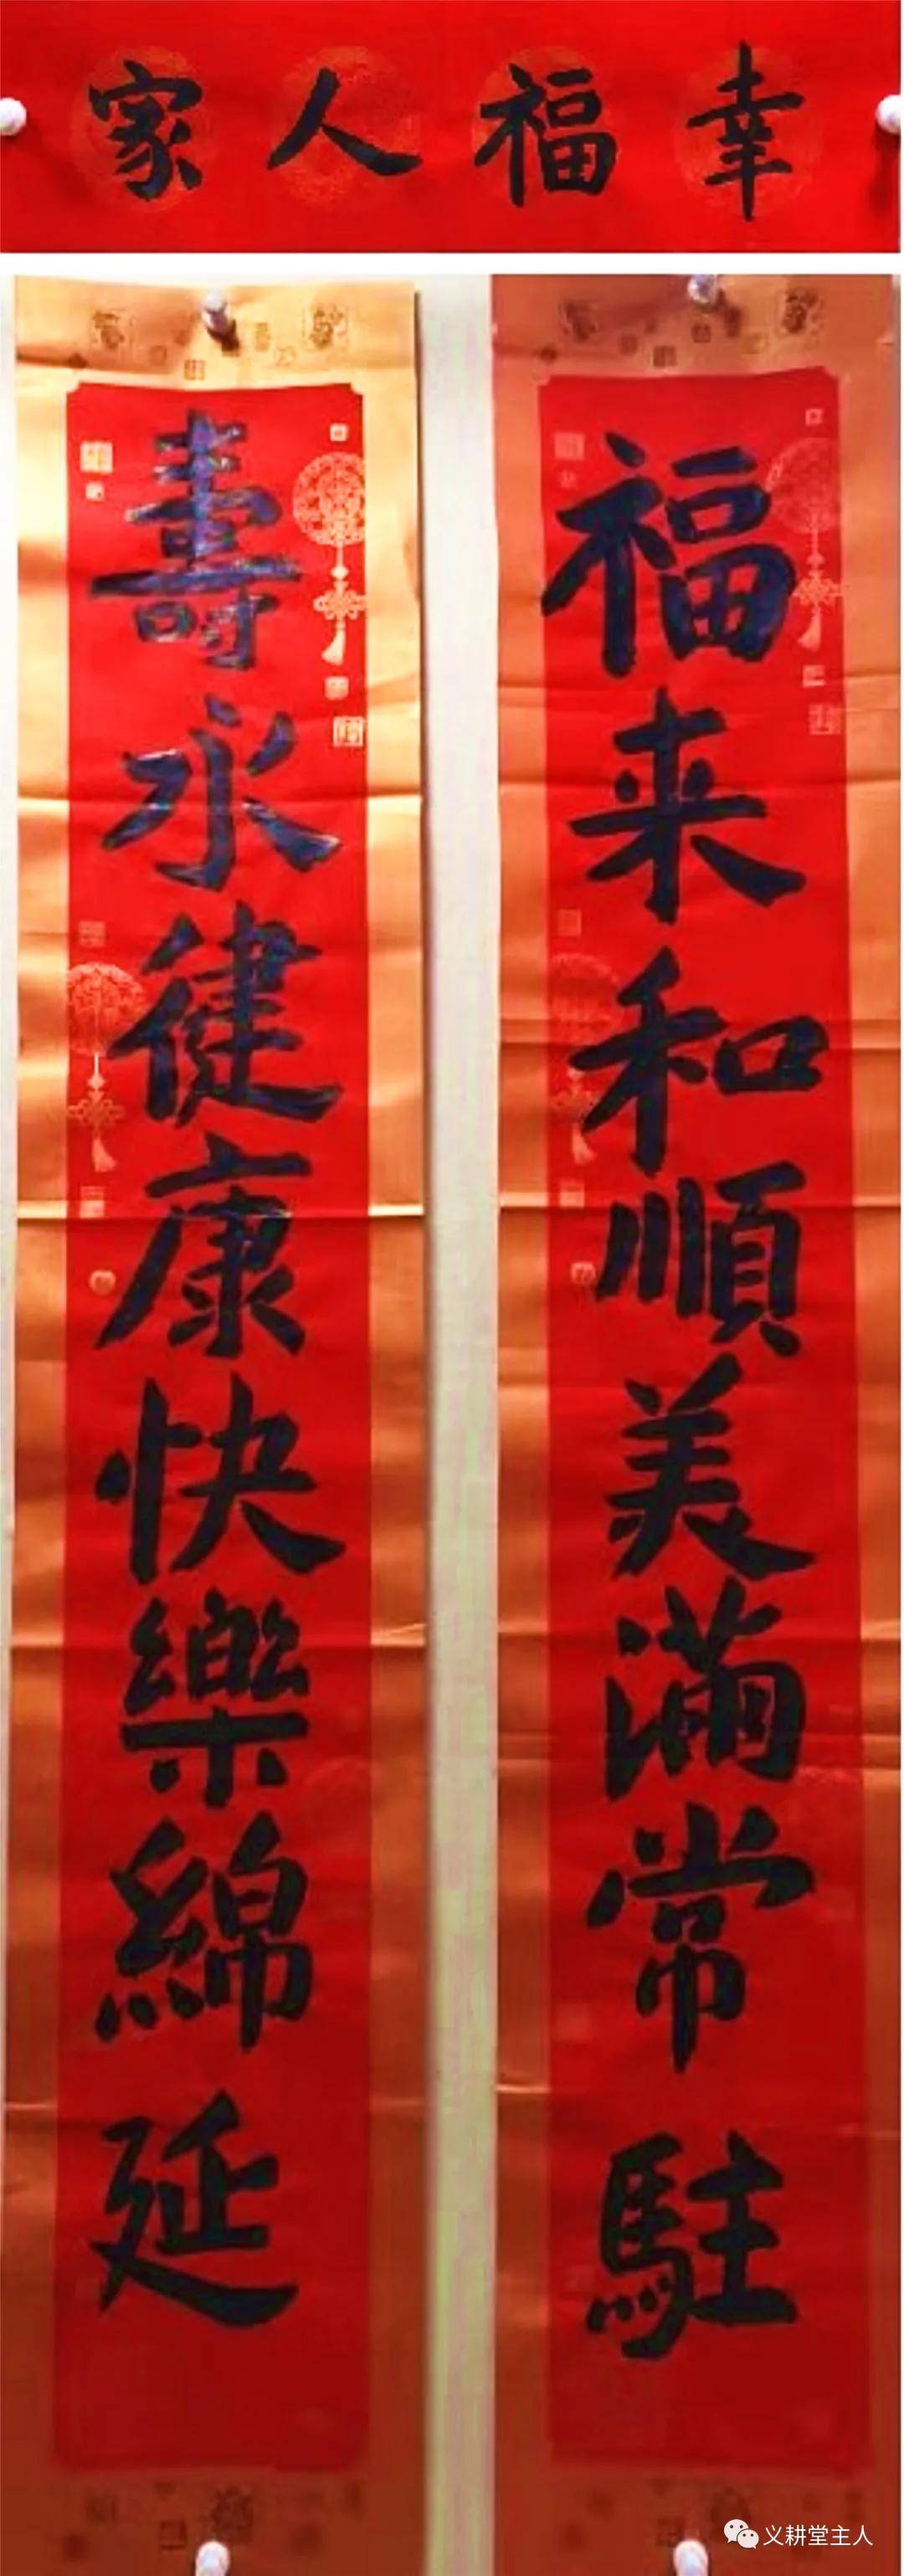 幸福人家
福来和順美滿常駐
壽永健康快樂綿延
义耕堂主人